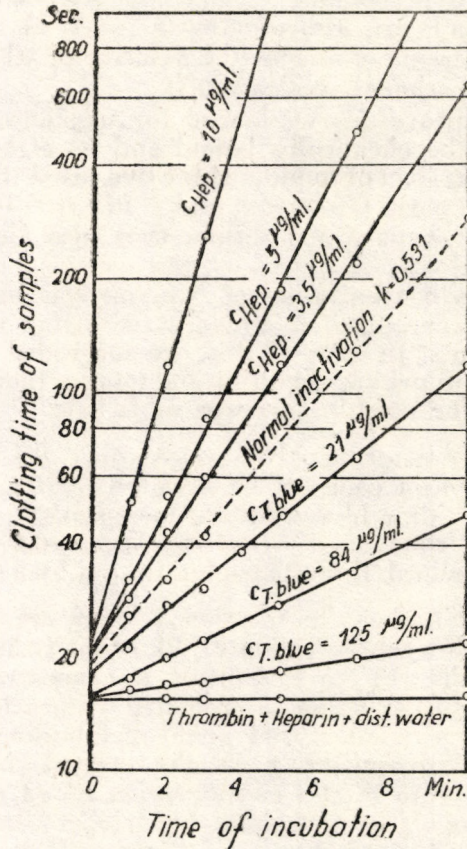 Sec.
800
600
400
200
100
80
60
40
20
10
Clotting time of samples
C Hep. = 10 µg/ml.
C Hep. = 5 µg/ml.
C Hep. = 3,5 µg/ml.
Normal inactivation k=0.531
C T.blue = 21 µg/ml.
C T.blue = 84 µg/ml.
C T.blue = 125 µg/ml.
Thrombin + Heparin + dist. water
0 2 4 6 8 Min.
Time of incubation